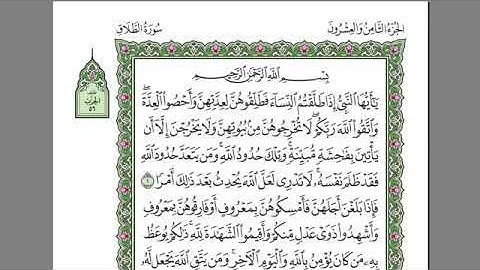 الجُزْءُ الثَّامِنُ وَالْعِشْرُونَ
سُورَةُ الطَّلَاقِ
نصف
الحزب
٥٦
بِسْمِ اللَّهِ الرَّحْمَٰنِ الرَّحِيمِ
يَٰٓأَيُّهَا ٱلنَّبِيُّ إِذَا طَلَّقۡتُمُ ٱلنِّسَآءَ فَطَلِّقُوهُنَّ لِعِدَّتِهِنَّ وَأَحۡصُواْ ٱلۡعِدَّةَۖ
وَٱتَّقُواْ ٱللَّهَ رَبَّكُمۡۖ لَا تُخۡرِجُوهُنَّ مِنۢ بُيُوتِهِنَّ وَلَا يَخۡرُجۡنَ إِلَّآ أَن
يَأۡتِينَ بِفَٰحِشَةٖ مُّبَيِّنَةٖۚ وَتِلۡكَ حُدُودُ ٱللَّهِۚ وَمَن يَتَعَدَّ حُدُودَ ٱللَّهِ
فَقَدۡ ظَلَمَ نَفۡسَهُۥۚ لَا تَدۡرِي لَعَلَّ ٱللَّهَ يُحۡدِثُ بَعۡدَ ذَٰلِكَ أَمۡرٗا ١
فَإِذَا بَلَغۡنَ أَجَلَهُنَّ فَأَمۡسِكُوهُنَّ بِمَعۡرُوفٍ أَوۡ فَارِقُوهُنَّ بِمَعۡرُوفٖ
وَأَشۡهِدُواْ ذَوَيۡ عَدۡلٖ مِّنكُمۡ وَأَقِيمُواْ ٱلشَّهَٰدَةَ لِلَّهِۚ ذَٰلِكُمۡ يُوعَظُ
بِهِۦ مَن كَانَ يُؤۡمِنُ بِٱللَّهِ وَٱلۡيَوۡمِ ٱلۡأٓخِرِۚ وَمَن يَتَّقِ ٱللَّهَ يَجۡعَل لَّهُۥ